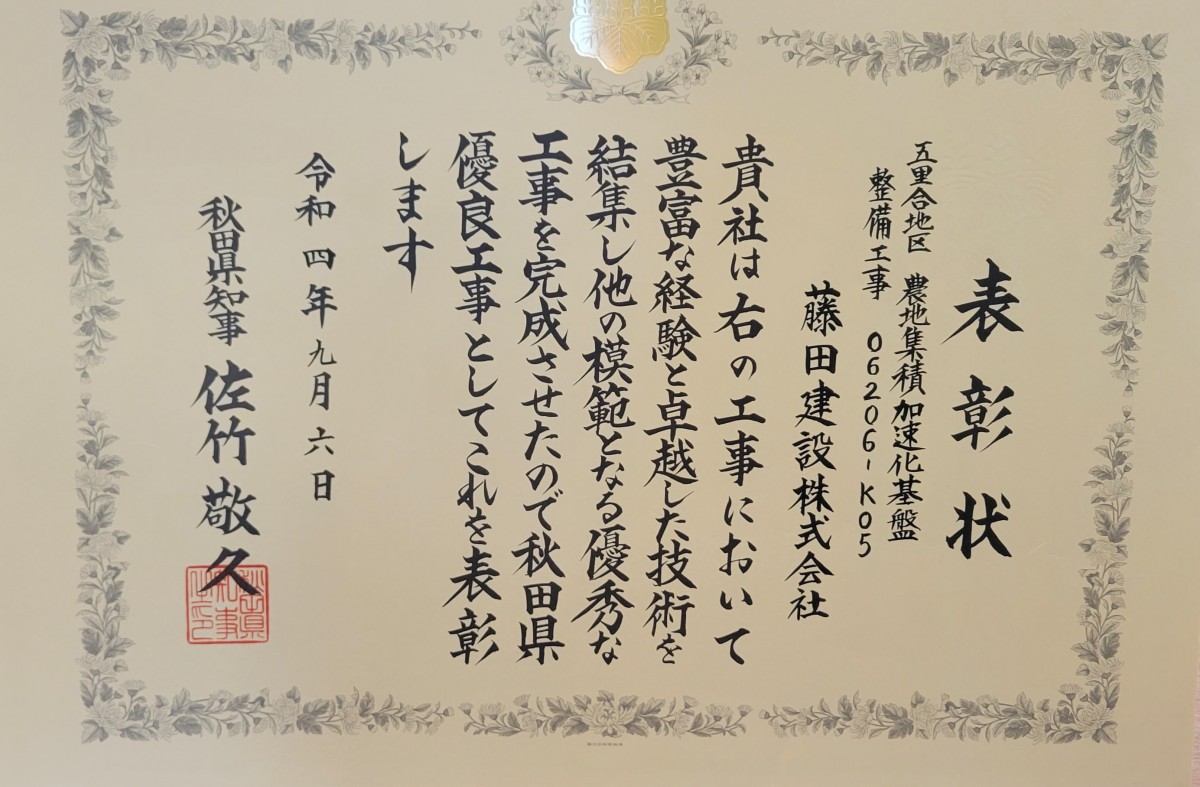 表彰状
五里合地区 農地集積加速化基盤
整備工事 06206-K05
藤田建設株式会社
貴社は右の工事において
豊富な経験と卓越した技術を
結集し他の模範となる優秀な
工事を完成させたので秋田県
優良工事としてこれを表彰
します
令和四年九月六日
秋田県知事 佐竹敬久